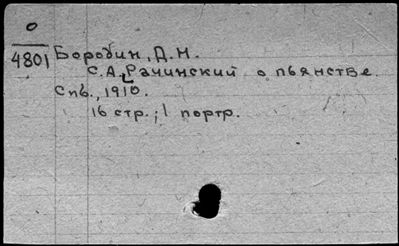 О
4801 Боробин, Д.Н.
С.А. Рачинский о пьянстве.
Спб., 1910.
16 стр.; 1 портр.